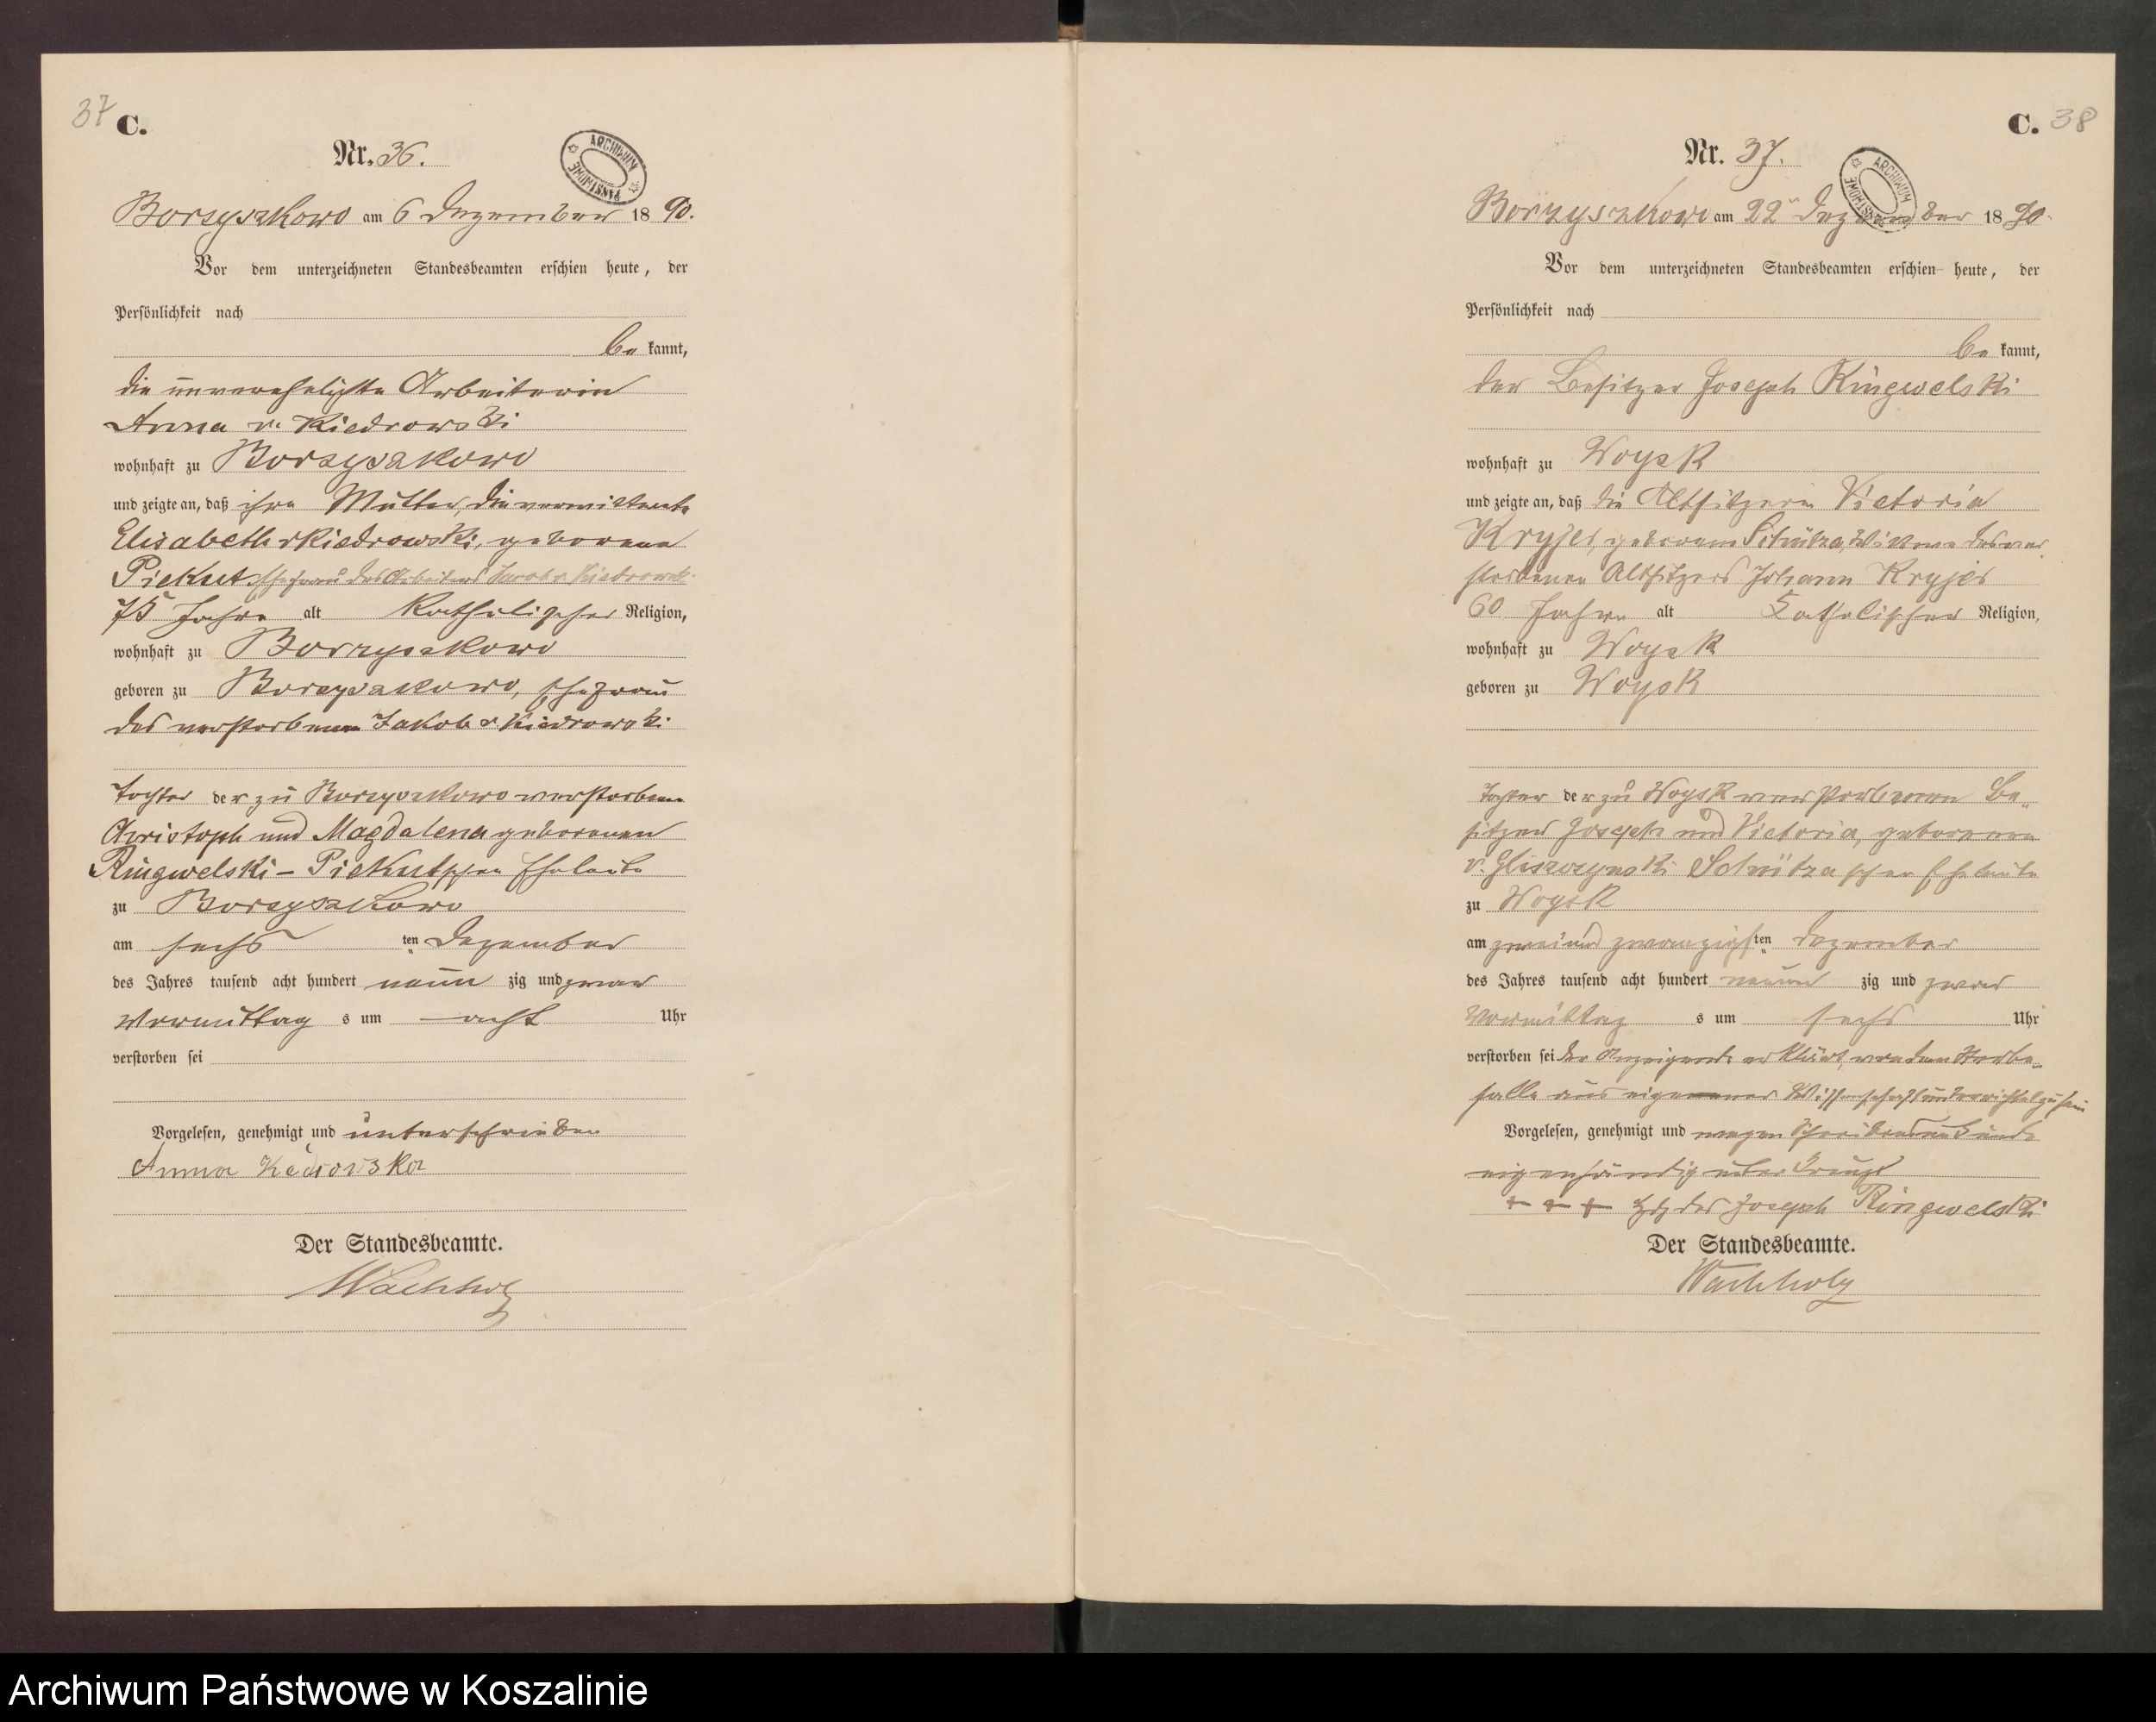 37 C.
Nr. 36.
ARCHIWUM PAŃSTWOWE
Borzyszkowo am 6 Dezember 18 90.
Vor dem unterzeichneten Standesbeamten erschien heute, der
Persönlichkeit nach
be kannt,
die unverehelichte Arbeiterin
Anna v. Kiedrowski
wohnhaft zu Borzyszkowo
und zeigte an, daß ihre Mutter, die verwittwete
Elisabeth v Kiedrowski, geborene
Piekut, Ehefrau des Arbeiters Jacob v Kiedrowski
75 Jahre alt Katholischer Religion,
wohnhaft zu Borzyszkowo
geboren zu Borzyszkowo, Ehefrau
des verstorbenen Jakob v. Kiedrowski
Tochter der zu Borzyszkowo verstorbenen
Christoph und Magdalena geborenen
Ringwelski – Piekutschen Eheleute
zu Borzyszkowo
am sechs ten Dezember
des Jahres tausend acht hundert neun zig und zwar
Vormittag s um acht Uhr
verstorben sei
Vorgelesen, genehmigt und unterschrieben
Anna Kedrowska
Der Standesbeamte.
Wachholz
C. 38
Nr. 37.
ARCHIWUM PAŃSTWOWE
Borzyszkowo am 22 Dezember 18 90.
Vor dem unterzeichneten Standesbeamten erschien heute, der
Persönlichkeit nach
be kannt,
der Besitzer Joseph Ringwelski
wohnhaft zu Woysk
und zeigte an, daß die Altsitzerin Victoria
Kryjes, geborene Schütza, Wittwe des ver-
storbenen Altsitzers Johann Kryjes
60 Jahre alt Katholischer Religion,
wohnhaft zu Woysk
geboren zu Woysk
Tochter der zu Woysk verstorbenen Be-
sitzer Joseph und Victoria, geborenen
v. Gliszczynski Schützaschen Eheleute
zu Woysk
am zweiund zwanzigsten Dezember
des Jahres tausend acht hundert neun zig und zwar
Vormittag s um sechs Uhr
verstorben sei der Anzeigende erklärt, von dem Sterbe-
falle aus eigener Wissenschaft unterrichtet zu sein
Vorgelesen, genehmigt und wegen Schreibensunkunde
eigenhändig unterkreuzt
+ + + Hdz des Joseph Ringwelski
Der Standesbeamte.
Wachholz
Archiwum Państwowe w Koszalinie